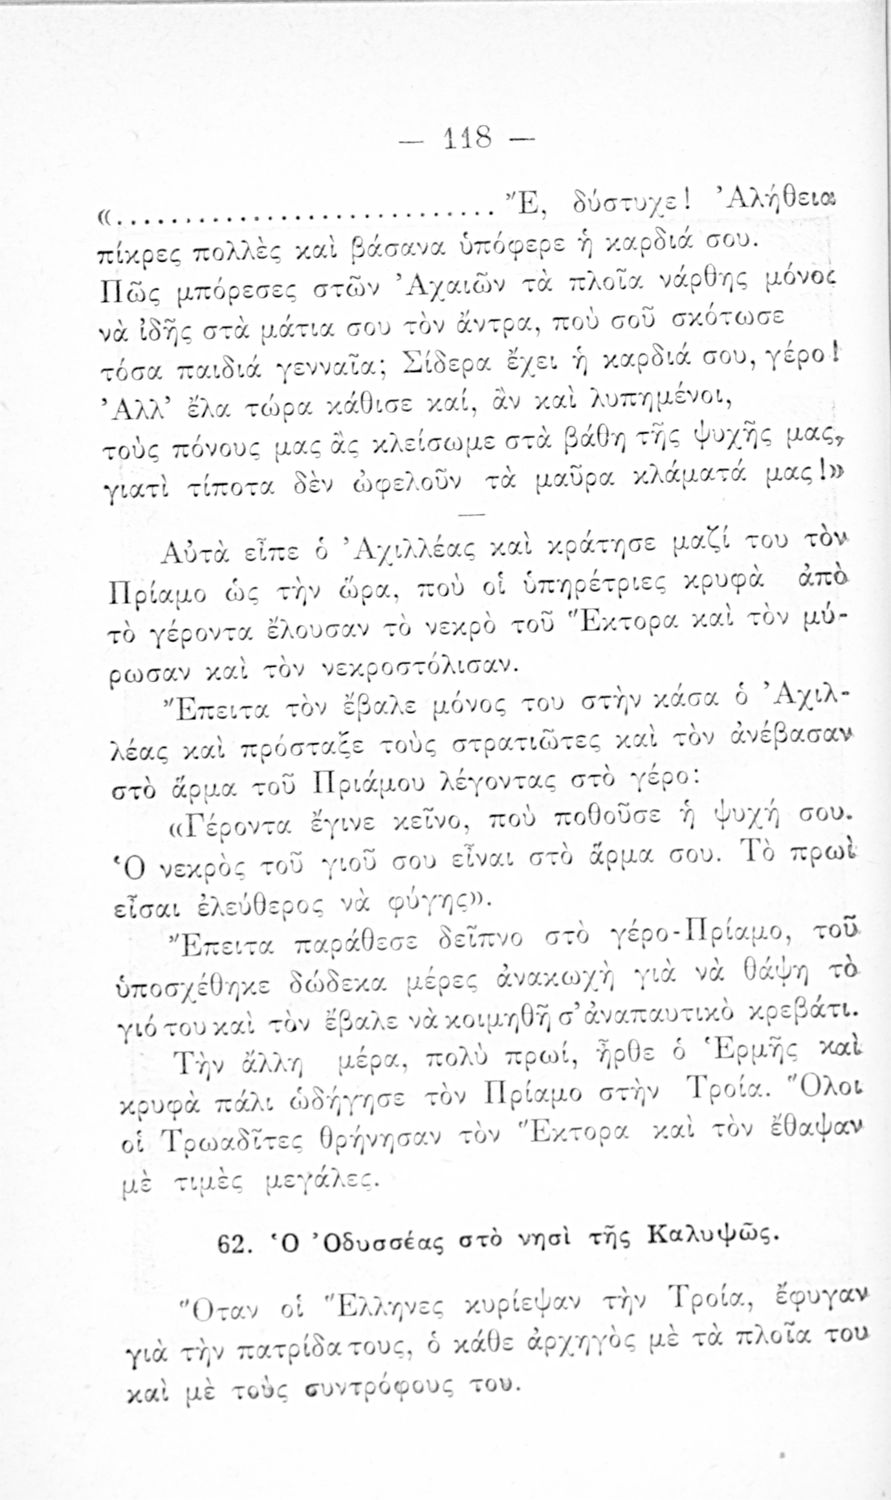 — 118 —
«............................ Ἔ, δύστυχε! Ἀλήθεια
πίκρες πολλὲς καὶ βάσανα ὑπόφερε ἡ καρδιά σου.
Πῶς μπόρεσες στῶν Ἀχαιῶν τὰ πλοῖα νάρθης μόνος
νὰ ἰδῆς στὰ μάτια σου τὸν ἄντρα, ποὺ σοῦ σκότωσε
τόσα παιδιά γενναῖα; Σίδερα ἔχει ἡ καρδιά σου, γέρο!
Ἀλλ' ἔλα τώρα κάθισε καί, ἂν καὶ λυπημένοι,
τοὺς πόνους μας ἂς κλείσωμε στὰ βάθη τῆς ψυχῆς μας,
γιατὶ τίποτα δὲν ὠφελοῦν τὰ μαῦρα κλάματά μας!»
—
Αὐτὰ εἶπε ὁ Ἀχιλλέας καὶ κράτησε μαζί του τὸν
Πρίαμο ὡς τὴν ὥρα, ποὺ οἱ ὑπηρέτριες κρυφὰ ἀπὸ
τὸ γέροντα ἔλουσαν τὸ νεκρὸ τοῦ Ἕκτορα καὶ τὸν μύ-
ρωσαν καὶ τὸν νεκροστόλισαν.
Ἔπειτα τὸν ἔβαλε μόνος του στὴν κάσα ὁ Ἀχιλ-
λέας καὶ πρόσταξε τοὺς στρατιῶτες καὶ τὸν ἀνέβασαν
στὸ ἅρμα τοῦ Πριάμου λέγοντας στὸ γέρο:
«Γέροντα ἔγινε κεῖνο, ποὺ ποθοῦσε ἡ ψυχή σου.
Ὁ νεκρὸς τοῦ γιοῦ σου εἶναι στὸ ἅρμα σου. Τὸ πρωὶ
εἶσαι ἐλεύθερος νὰ φύγης».
Ἔπειτα παράθεσε δεῖπνο στὸ γέρο-Πρίαμο, τοῦ
ὑποσχέθηκε δώδεκα μέρες ἀνακωχὴ γιὰ νὰ θάψη τὸ
γιό του καὶ τὸν ἔβαλε νὰ κοιμηθῆ σ' ἀναπαυτικὸ κρεβάτι.
Τὴν ἄλλη μέρα, πολὺ πρωί, ἦρθε ὁ Ἑρμῆς καὶ
κρυφὰ πάλι ὡδήγησε τὸν Πρίαμο στὴν Τροία. Ὅλοι
οἱ Τρωαδῖτες θρήνησαν τὸν Ἕκτορα καὶ τὸν ἔθαψαν
μὲ τιμὲς μεγάλες.
62. Ὁ Ὀδυσσέας στὸ νησὶ τῆς Καλυψῶς.
Ὅταν οἱ Ἕλληνες κυρίεψαν τὴν Τροία, ἔφυγαν
γιὰ τὴν πατρίδα τους, ὁ κάθε ἀρχηγὸς μὲ τὰ πλοῖα του
καὶ μὲ τοὺς συντρόφους του.